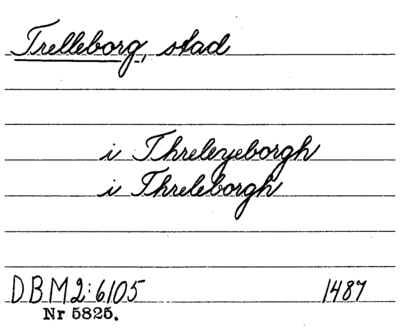 Trelleborg, stad
i Threleyeborgh
i Threleborgh
DBM2:6105 1487
Nr 5825.